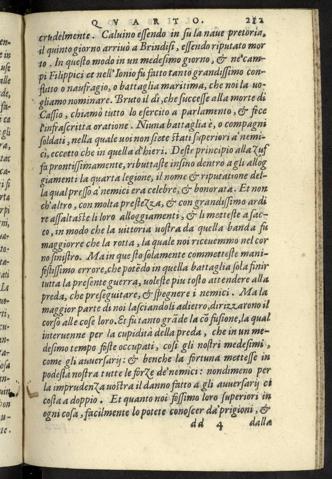 QVARTO. 212
crudelmente. Caluino essendo in su la naue pretoria,
il quinto giorno arriuò a Brindisi, essendo riputato mor
to. In questo modo in un medesimo giorno, & ne' cam-
pi Filippici et nell'Ionio fu fatto tanto grandissimo con-
flutto o naufragio, o battaglia maritima, che noi la uo-
gliamo nominare. Bruto il dì, che successe alla morte di
Cassio, chiamò tutto lo esercito a parlamento, & fece
l'infrascritta oratione. Niuna battaglia è, o compagni
soldati, nella quale uoi non siete stati superiori a' nemi-
ci, eccetto che in quella d'hieri. Deste principio alla zuf
fa prontissimamente, ributtaste insino dentro a gli allog
giamenti la quarta legione, il nome & riputatione del-
la qual presso a' nemici era celebre, & honorata. Et non
ch'altro, con molta prestezza, & con grandissimo ardi
re assaltaste li loro alloggiamenti, & li metteste a sac-
co, in modo che la uittoria uostra da quella banda fu
maggiorre che la rotta, la quale noi riceuemmo nel cor
no sinistro. Ma in questo solamente commetteste mani-
festissimo errore, che potēdo in quella battaglia sola finir
tutta la presente guerra, uoleste piu tosto attendere alla
preda, che perseguitare, & spegnere i nemici. Ma la
maggior parte di noi lasciandoli adietro, dirizzarono il
corso alle cose loro. Et fu tanto grāde la cōfusione, la qual
interuenne per la cupidità della preda, che in un me-
desimo tempo foste occupati, così gli nostri medesimi,
come gli auuersarij: & benche la fortuna mettesse in
podestà nostra tutte le forze de' nemici: nondimeno per
la imprudenza uostra il danno fatto a gli auuersarij ci
costa a doppio. Et quanto noi fossimo loro superiori in
ogni cosa, facilmente lo potete conoscer da' prigioni, &
dd 4 dalla